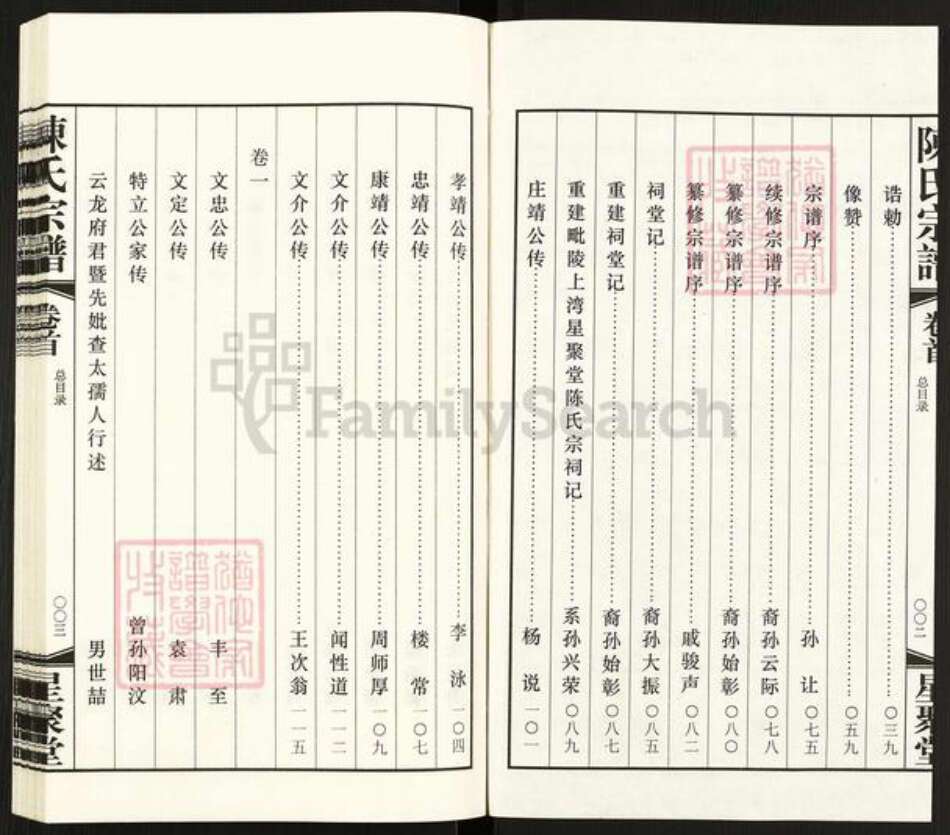 陳氏宗譜 卷首 总目录 〇〇二 星聚堂
诰勅 〇三九
像赞 〇五九
宗谱序 孙让 〇七五
续修宗谱序 裔孙云际 〇七八
纂修宗谱序 裔孙始彰 〇八〇
纂修宗谱序 戚骏声 〇八二
祠堂记 裔孙大振 〇八五
重建祠堂记 裔孙始彰 〇八七
重建毗陵上湾星聚堂陈氏宗祠记 系孙兴荣 〇八九
庄靖公传 杨说 一〇一
孝靖公传 李泳 一〇四
忠靖公传 楼常 一〇七
康靖公传 周师厚 一〇九
文介公传 闻性道 一一二
文介公传 王次翁 一一五
卷一
文忠公传 丰至
文定公传 袁肃
特立公家传 曾孙阳汶
云龙府君暨先妣查太孺人行述 男世喆
陳氏宗譜 卷首 总目录 〇〇三 星聚堂
FamilySearch